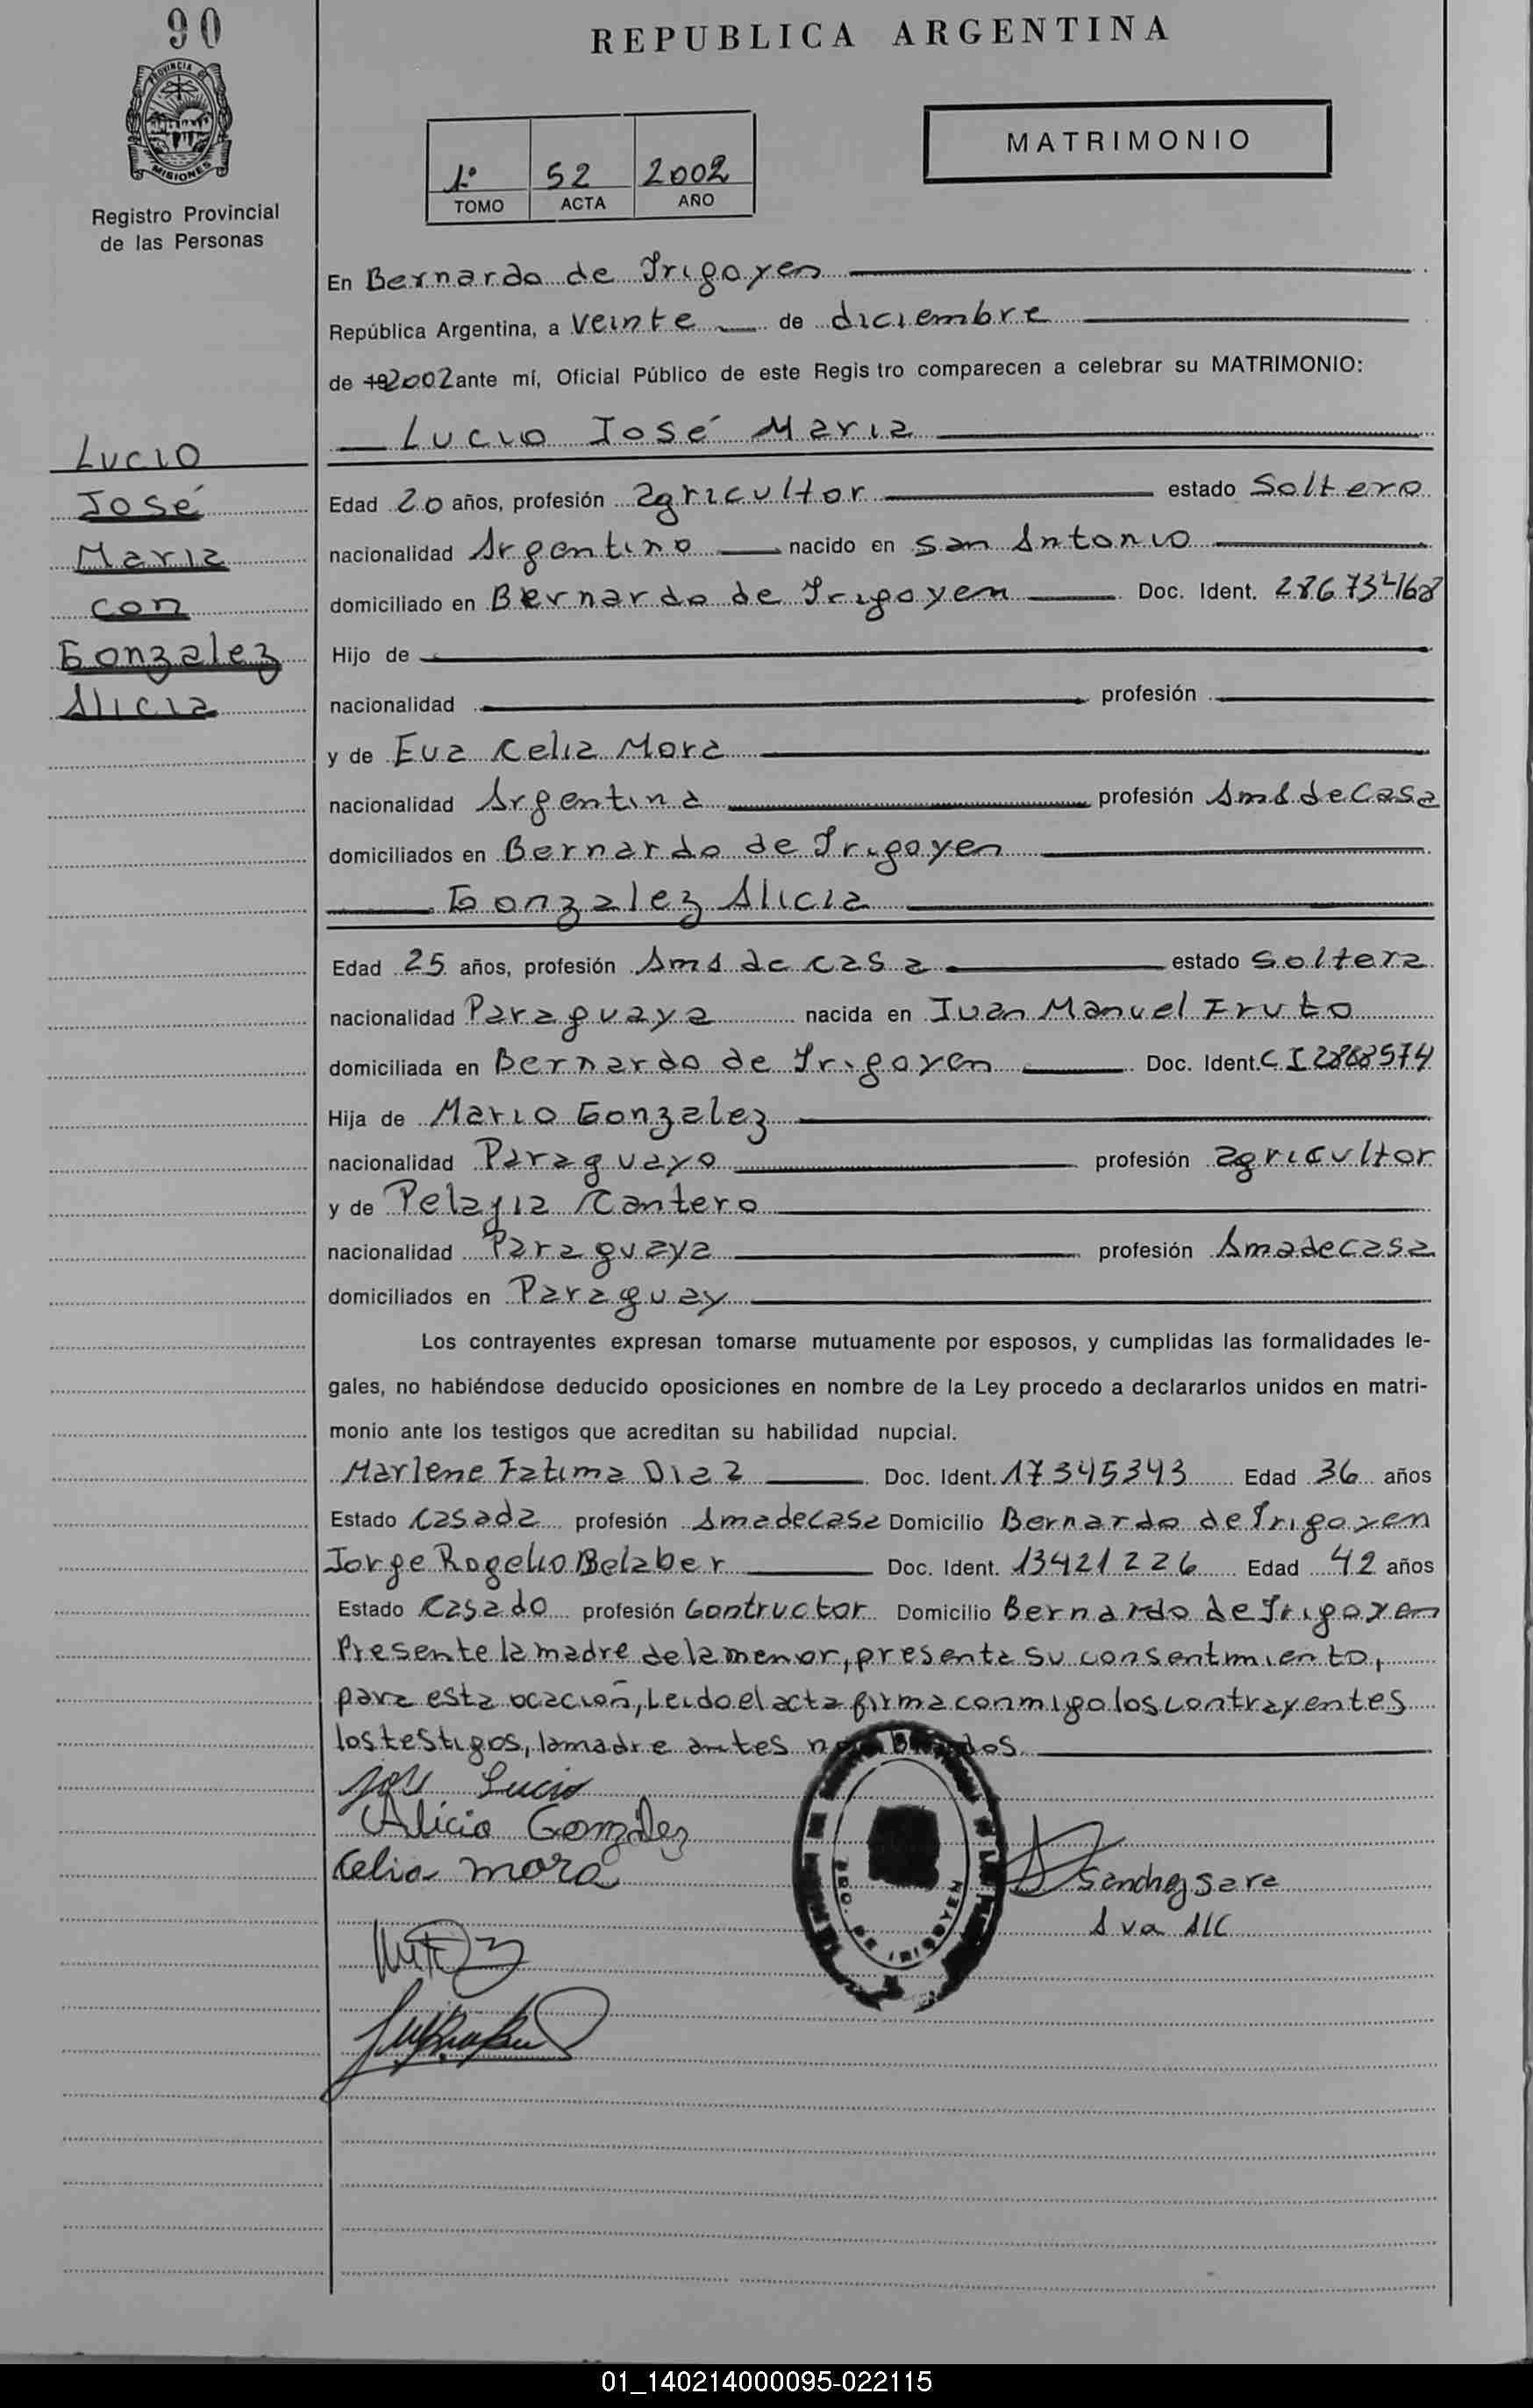 90
REPUBLICA ARGENTINA
PROVINCIA DE
MISIONES
Registro Provincial
de las Personas
MATRIMONIO
1º 52 2002
TOMO ACTA AÑO
En Bernardo de Irigoyen
República Argentina, a veinte de diciembre
de 192002 ante mí, Oficial Público de este Regis tro comparecen a celebrar su MATRIMONIO:
Lucio José Maria
Lucio
José
Maria
con
Gonzalez
Alicia
Edad 20 años, profesión agricultor estado Soltero
nacionalidad Argentino nacido en San Antonio
domiciliado en Bernardo de Irigoyen Doc. Ident. 28673468
Hijo de
nacionalidad profesión
y de Eva Celia Mora
nacionalidad Argentina profesión Ama de Casa
domiciliados en Bernardo de Irigoyen
Gonzalez Alicia
Edad 25 años, profesión Ama de casa estado Soltera
nacionalidad Paraguaya nacida en Juan Manuel Fruto
domiciliada en Bernardo de Irigoyen Doc. Ident. CI 2868574
Hija de Mario Gonzalez
nacionalidad Paraguayo profesión agricultor
y de Pelagia Cantero
nacionalidad Paraguaya profesión Ama de casa
domiciliados en Paraguay
Los contrayentes expresan tomarse mutuamente por esposos, y cumplidas las formalidades le-
gales, no habiéndose deducido oposiciones en nombre de la Ley procedo a declararlos unidos en matri-
monio ante los testigos que acreditan su habilidad nupcial.
Marlene Fatima Diaz Doc. Ident. 17345343 Edad 36 años
Estado Casada profesión Ama de casa Domicilio Bernardo de Irigoyen
Jorge Rogelio Belaber Doc. Ident. 13421226 Edad 42 años
Estado Casado profesión Contructor Domicilio Bernardo de Irigoyen
Presente la madre de la menor, presenta su consentimiento,
para esta ocación, Leido el acta firma conmigo los contrayentes
los testigos, la madre antes nombrados.
José Lucio
Alicia Gonzalez
Celia mora
BDO. DE IRIGOYEN
Sanchez Sara
A va A/C
01_140214000095-022115